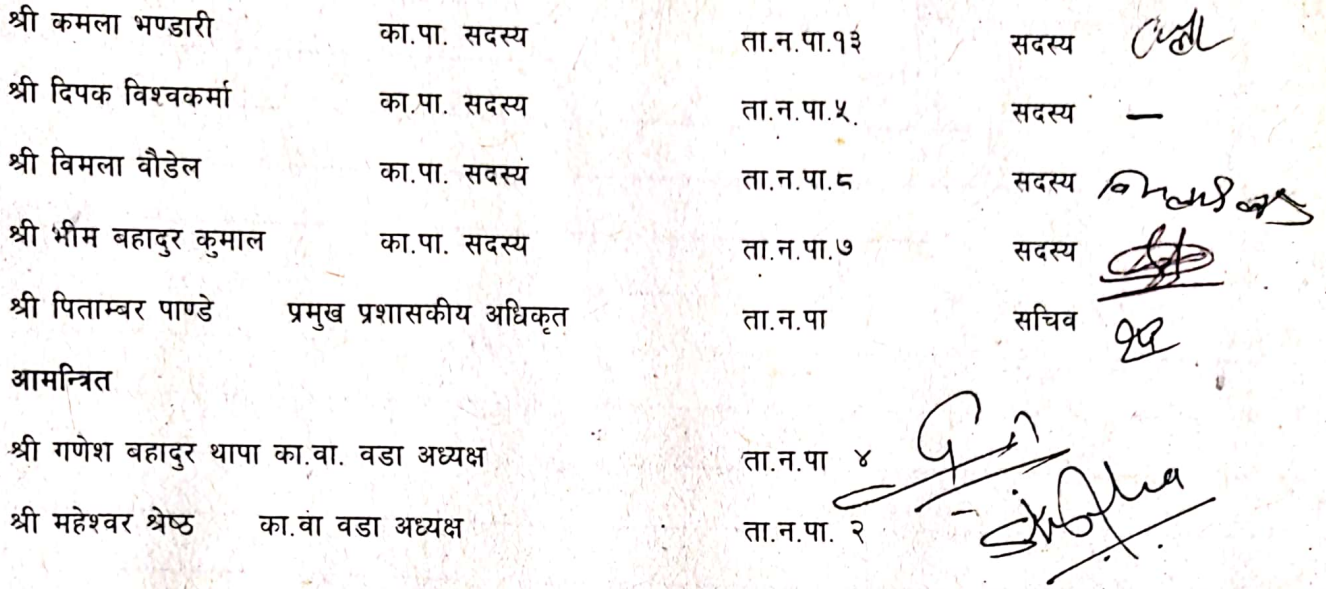 श्री कमला भण्डारी का.पा. सदस्य ता.न.पा.१३ सदस्य
श्री दिपक विश्वकर्मा का.पा. सदस्य ता.न.पा.५. सदस्य —
श्री विमला वौडेल का.पा. सदस्य ता.न.पा.८ सदस्य
श्री भीम बहादुर कुमाल का.पा. सदस्य ता.न.पा.७ सदस्य
श्री पिताम्बर पाण्डे प्रमुख प्रशासकीय अधिकृत ता.न.पा सचिव
आमन्त्रित
श्री गणेश बहादुर थापा का.वा. वडा अध्यक्ष ता.न.पा ४
श्री महेश्वर श्रेष्ठ का.वा वडा अध्यक्ष ता.न.पा. २